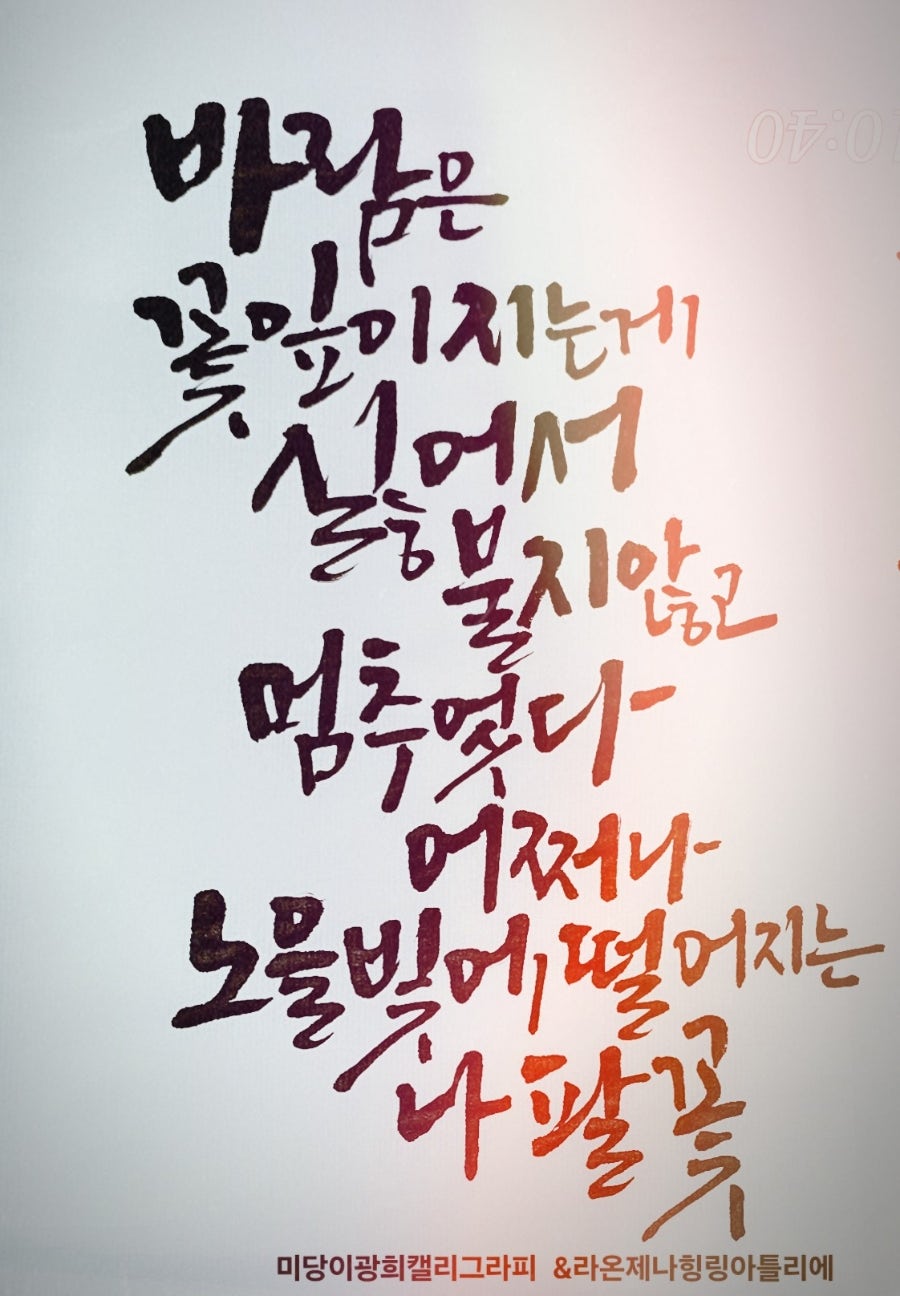 바람은
꽃잎이 지는게
싫어서
불지않고
멈추엇다
어쩌나
노을빛에 떨어지는
나팔꽃
미당이광희캘리그라피 &라온제나힝링아틀리에